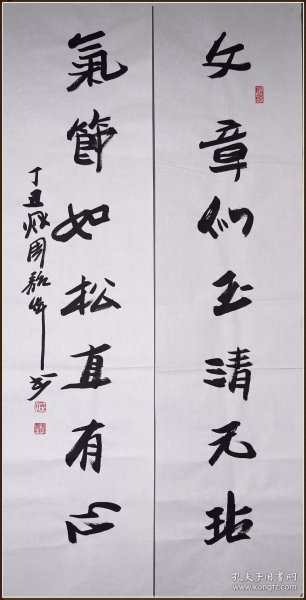 文章似玉清无玷
氣節如松直有心
丁丑秋周韶華書
孔夫子旧书网
www.kongfz.com